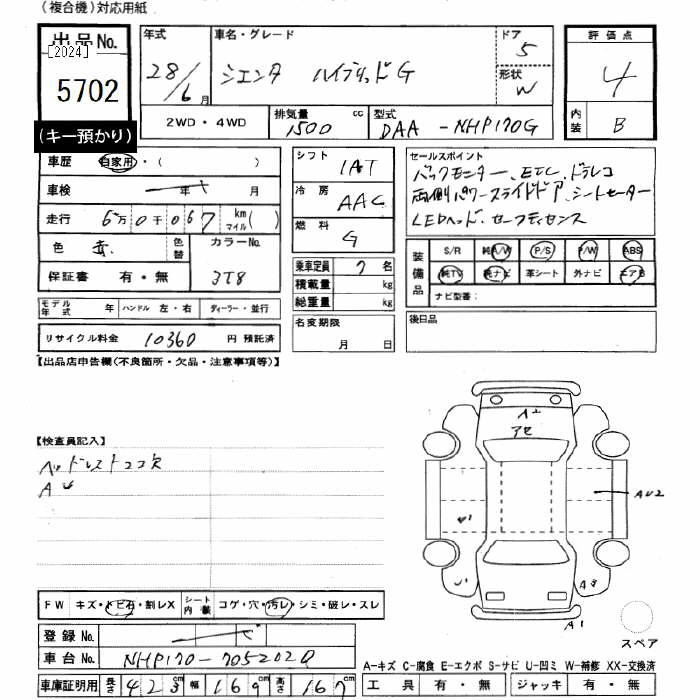 (複合機)対応用紙
出品No.
[2024]
5702
(キー預かり)
年式
28/6月
車名・グレード
シエンタ ハイブリッドG
ドア
5
形状
W
評価点
4
内装
B
2WD・4WD
排気量
1500 cc
型式
DAA-NHP170G
車歴 自家用・( )
車検 年 月
走行 6万0千067 km マイル( )
色 赤
色替
カラーNo.
3T8
保証書 有・無
モデル年式 年
ハンドル 左・右
ディーラー・並行
リサイクル料金 10360 円 預託済
シフト
IAT
冷房
AAC
燃料
G
乗車定員 7名
積載量 kg
総重量 kg
名変期限
月 日
セールスポイント
バックモニター、ETC、ドラレコ
両側パワースライドドア、シートヒーター
LEDヘッド、セーフティセンス
装備品
S/R 純A/W P/S P/W ABS
純TV 純ナビ 革シート 外ナビ エアB
ナビ型番:
後日品
【出品店申告欄(不良箇所・欠品・注意事項等)】
【検査員記入】
ヘッドレスト1コ欠
A U
A2
アセ
AU2
U1
U1
A3
A1
スペア
FW キズ・トビ石・割レX
シート内装 コゲ・穴・汚レ・シミ・破レ・スレ
登録No.
車台No. NHP170-7052020
車庫証明用 長さ 423cm 幅 169cm 高さ 167cm
A-キズ C-腐食 E-エクボ S-サビ U-凹ミ W-補修 XX-交換済
工具 有・無 ジャッキ 有・無